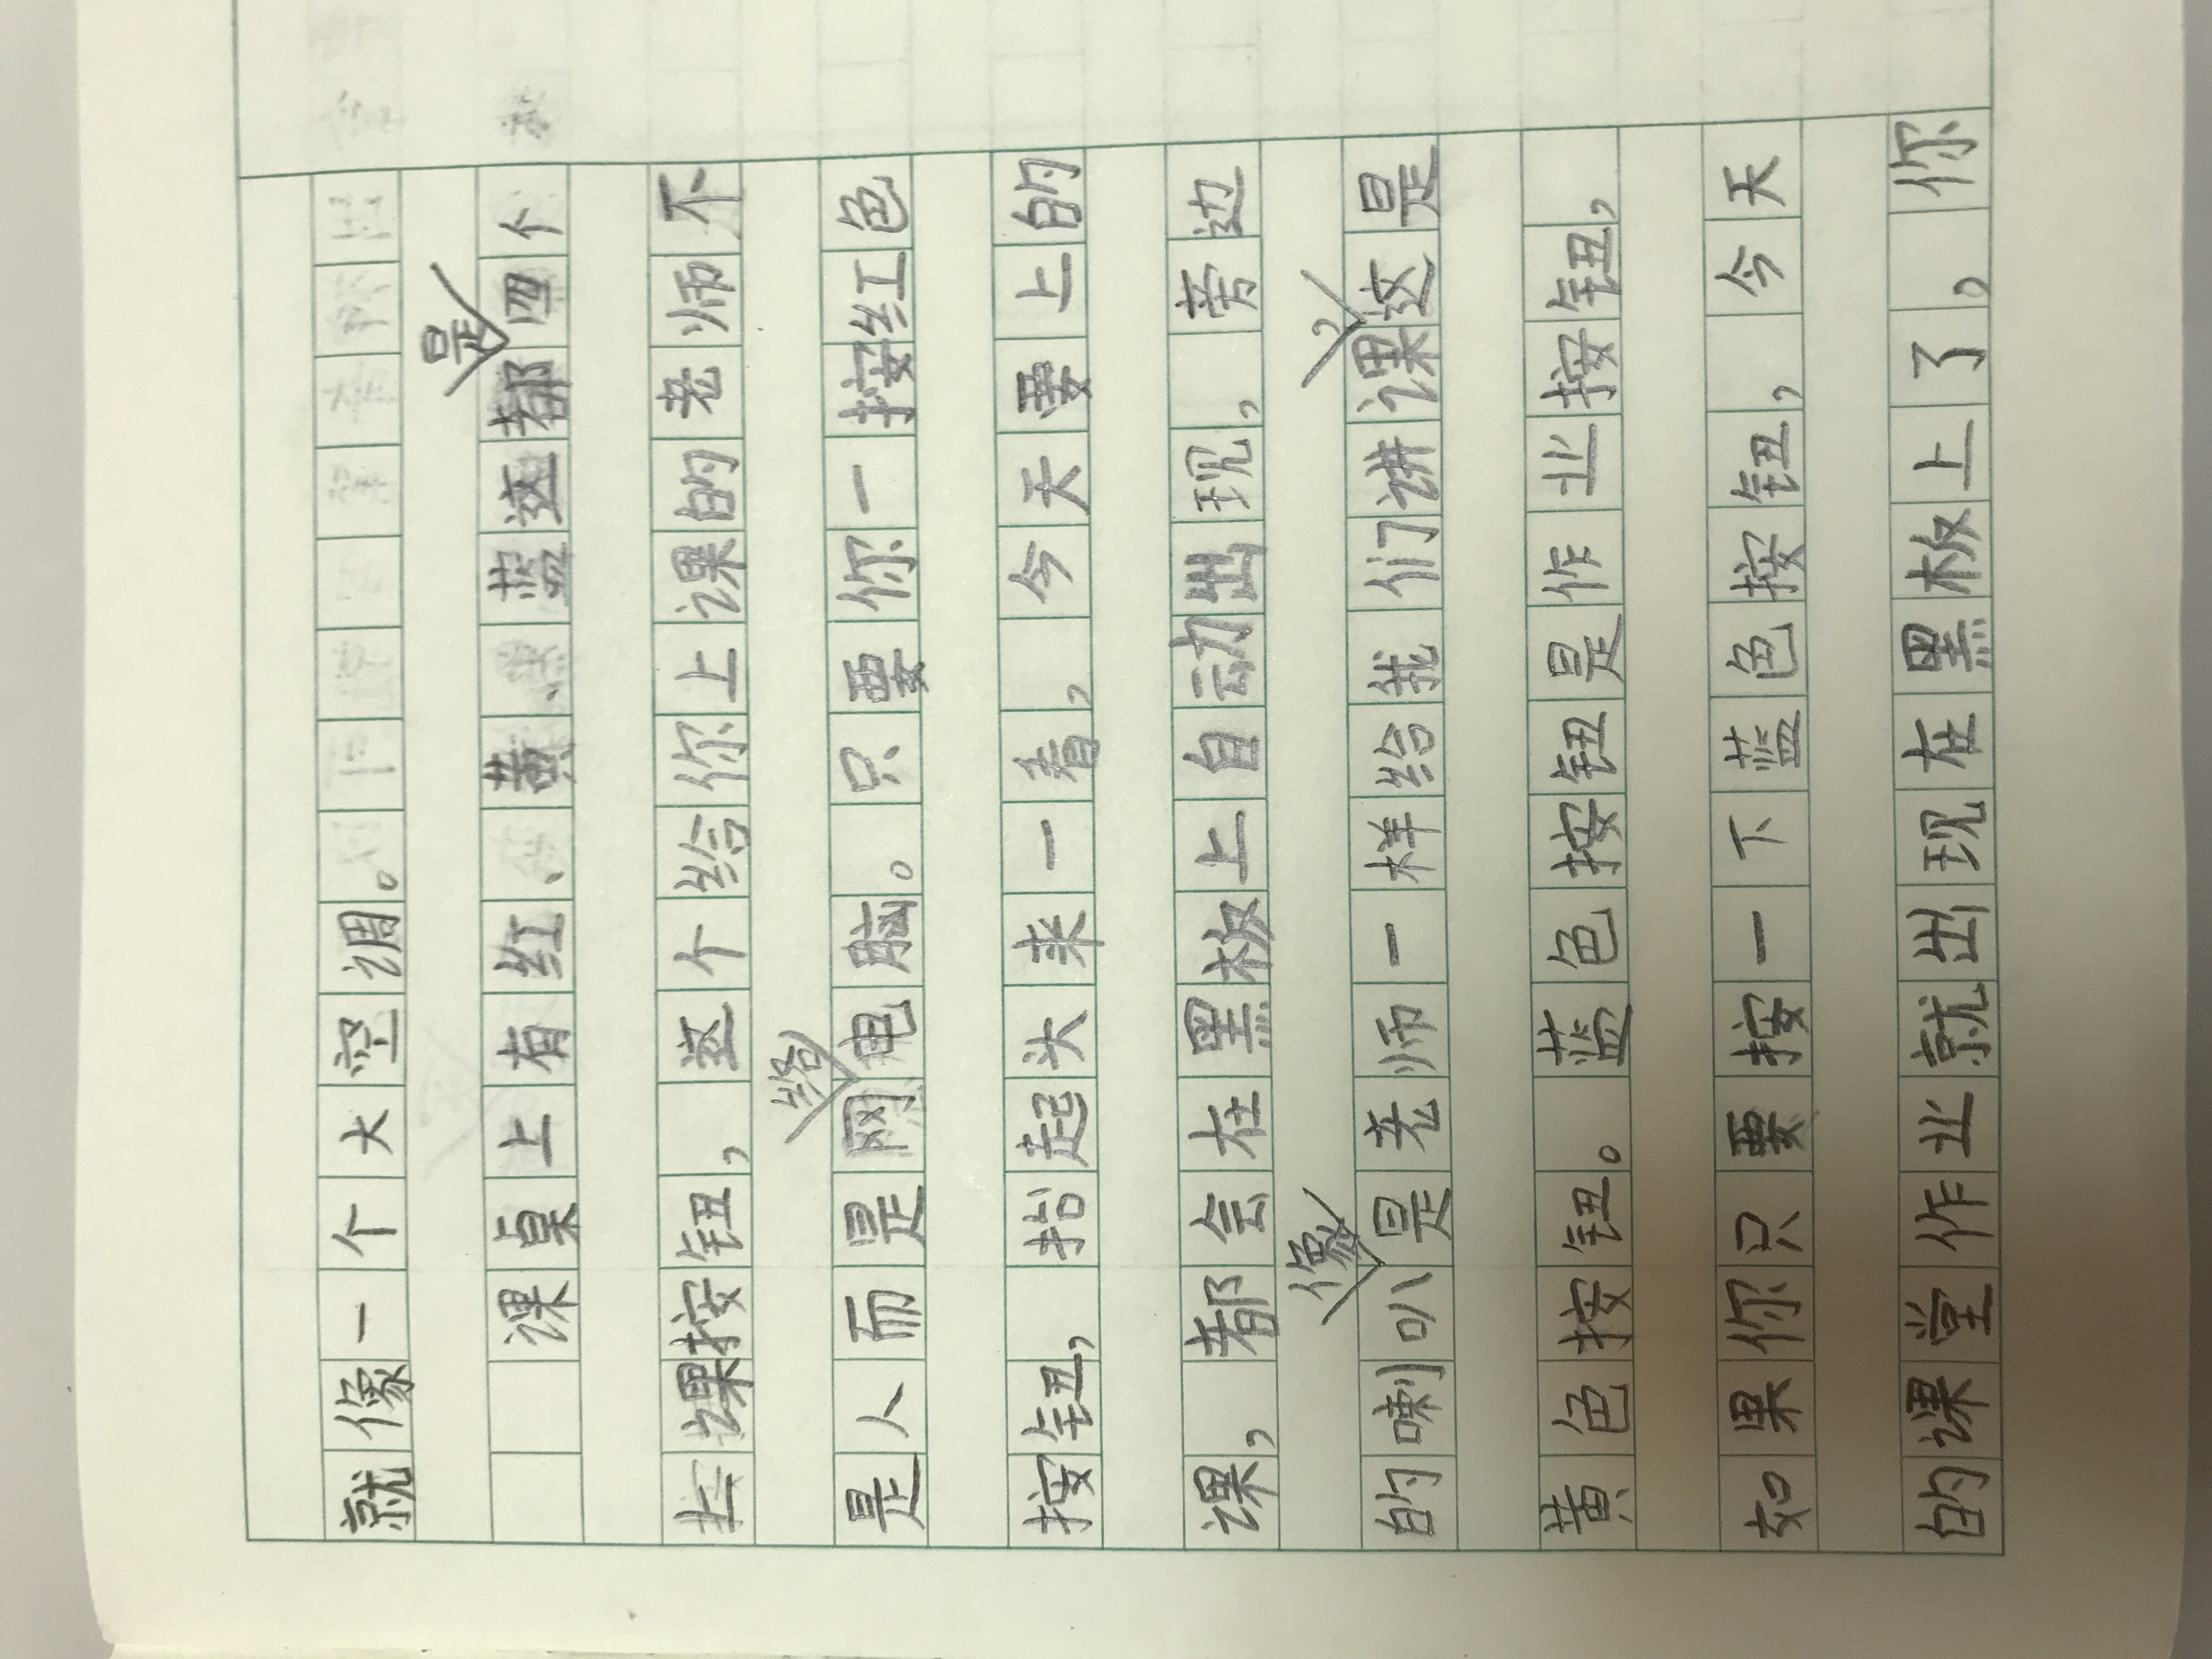 就像一个大空调。
课桌上有红、黄、蓝这都是四个
上课按钮，这个给你上课的老师不
是人而是网络电脑。只要你一按红色
按钮，抬起头来一看，今天要上的
课，都会在黑板上自动出现，旁边
的喇叭像是老师一样给我们讲课，这是
黄色按钮。蓝色按钮是作业按钮，
如果你只要按一下蓝色按钮，今天
的课堂作业就出现在黑板上了。你